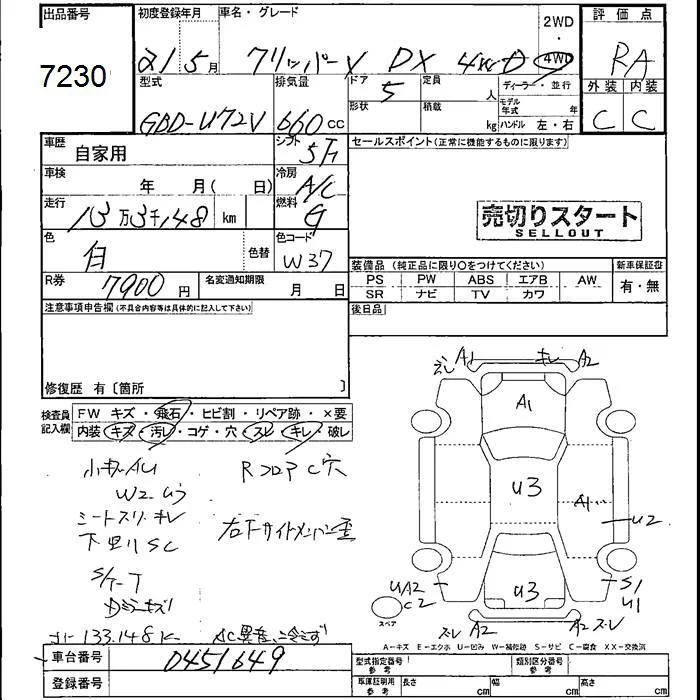 出品番号
7230
初度登録年月
21 5月
車名・グレード
クリッパーV DX 4WD
2WD
・
4WD
評価点
RA
外装 内装
C C
型式
GBD-U72V
排気量
660cc
ドア 5
形状
定員 人
積載 kg
ディーラー・並行
モデル年式 年
ハンドル 左・右
車歴
自家用
シフト
5F
車検 年 月( 日)
冷房
A/C
走行
13万3千148 km
燃料
G
色
白
色替
色コード
W37
R券
7900円
名変通知期限 月 日
セールスポイント(正常に機能するものに限ります)
売切りスタート
SELLOUT
装備品(純正品に限り○をつけてください)
新車保証書
PS PW ABS エアB AW
SR ナビ TV カワ
有・無
後日品
注意事項申告欄(不具合内容等は具体的に記入して下さい)
修復歴 有〔箇所 〕
検査員記入欄
FW キズ・飛石・ヒビ割・リペア跡・×要
内装 キズ・汚レ・コゲ・穴・スレ・キレ・破レ
小キズAU
Rフロア C穴
シートスリ.キレ
下回りSC
右下サイドメンバー歪
S/T-T
133.148K
AC異音、冷えず
A1 キレ A2
A1
U3
A1
U2
U3
UA2
C2
スペア
S1
U1
ズレ A2
A2 ズレ
A-キズ E-エクボ U-凹み W-補修跡 S-サビ C-腐食 XX-交換済
車台番号
0451649
登録番号
型式指定番号 参考
類別区分番号 参考
車庫証明用 参考
長さ cm
幅 cm
高さ cm